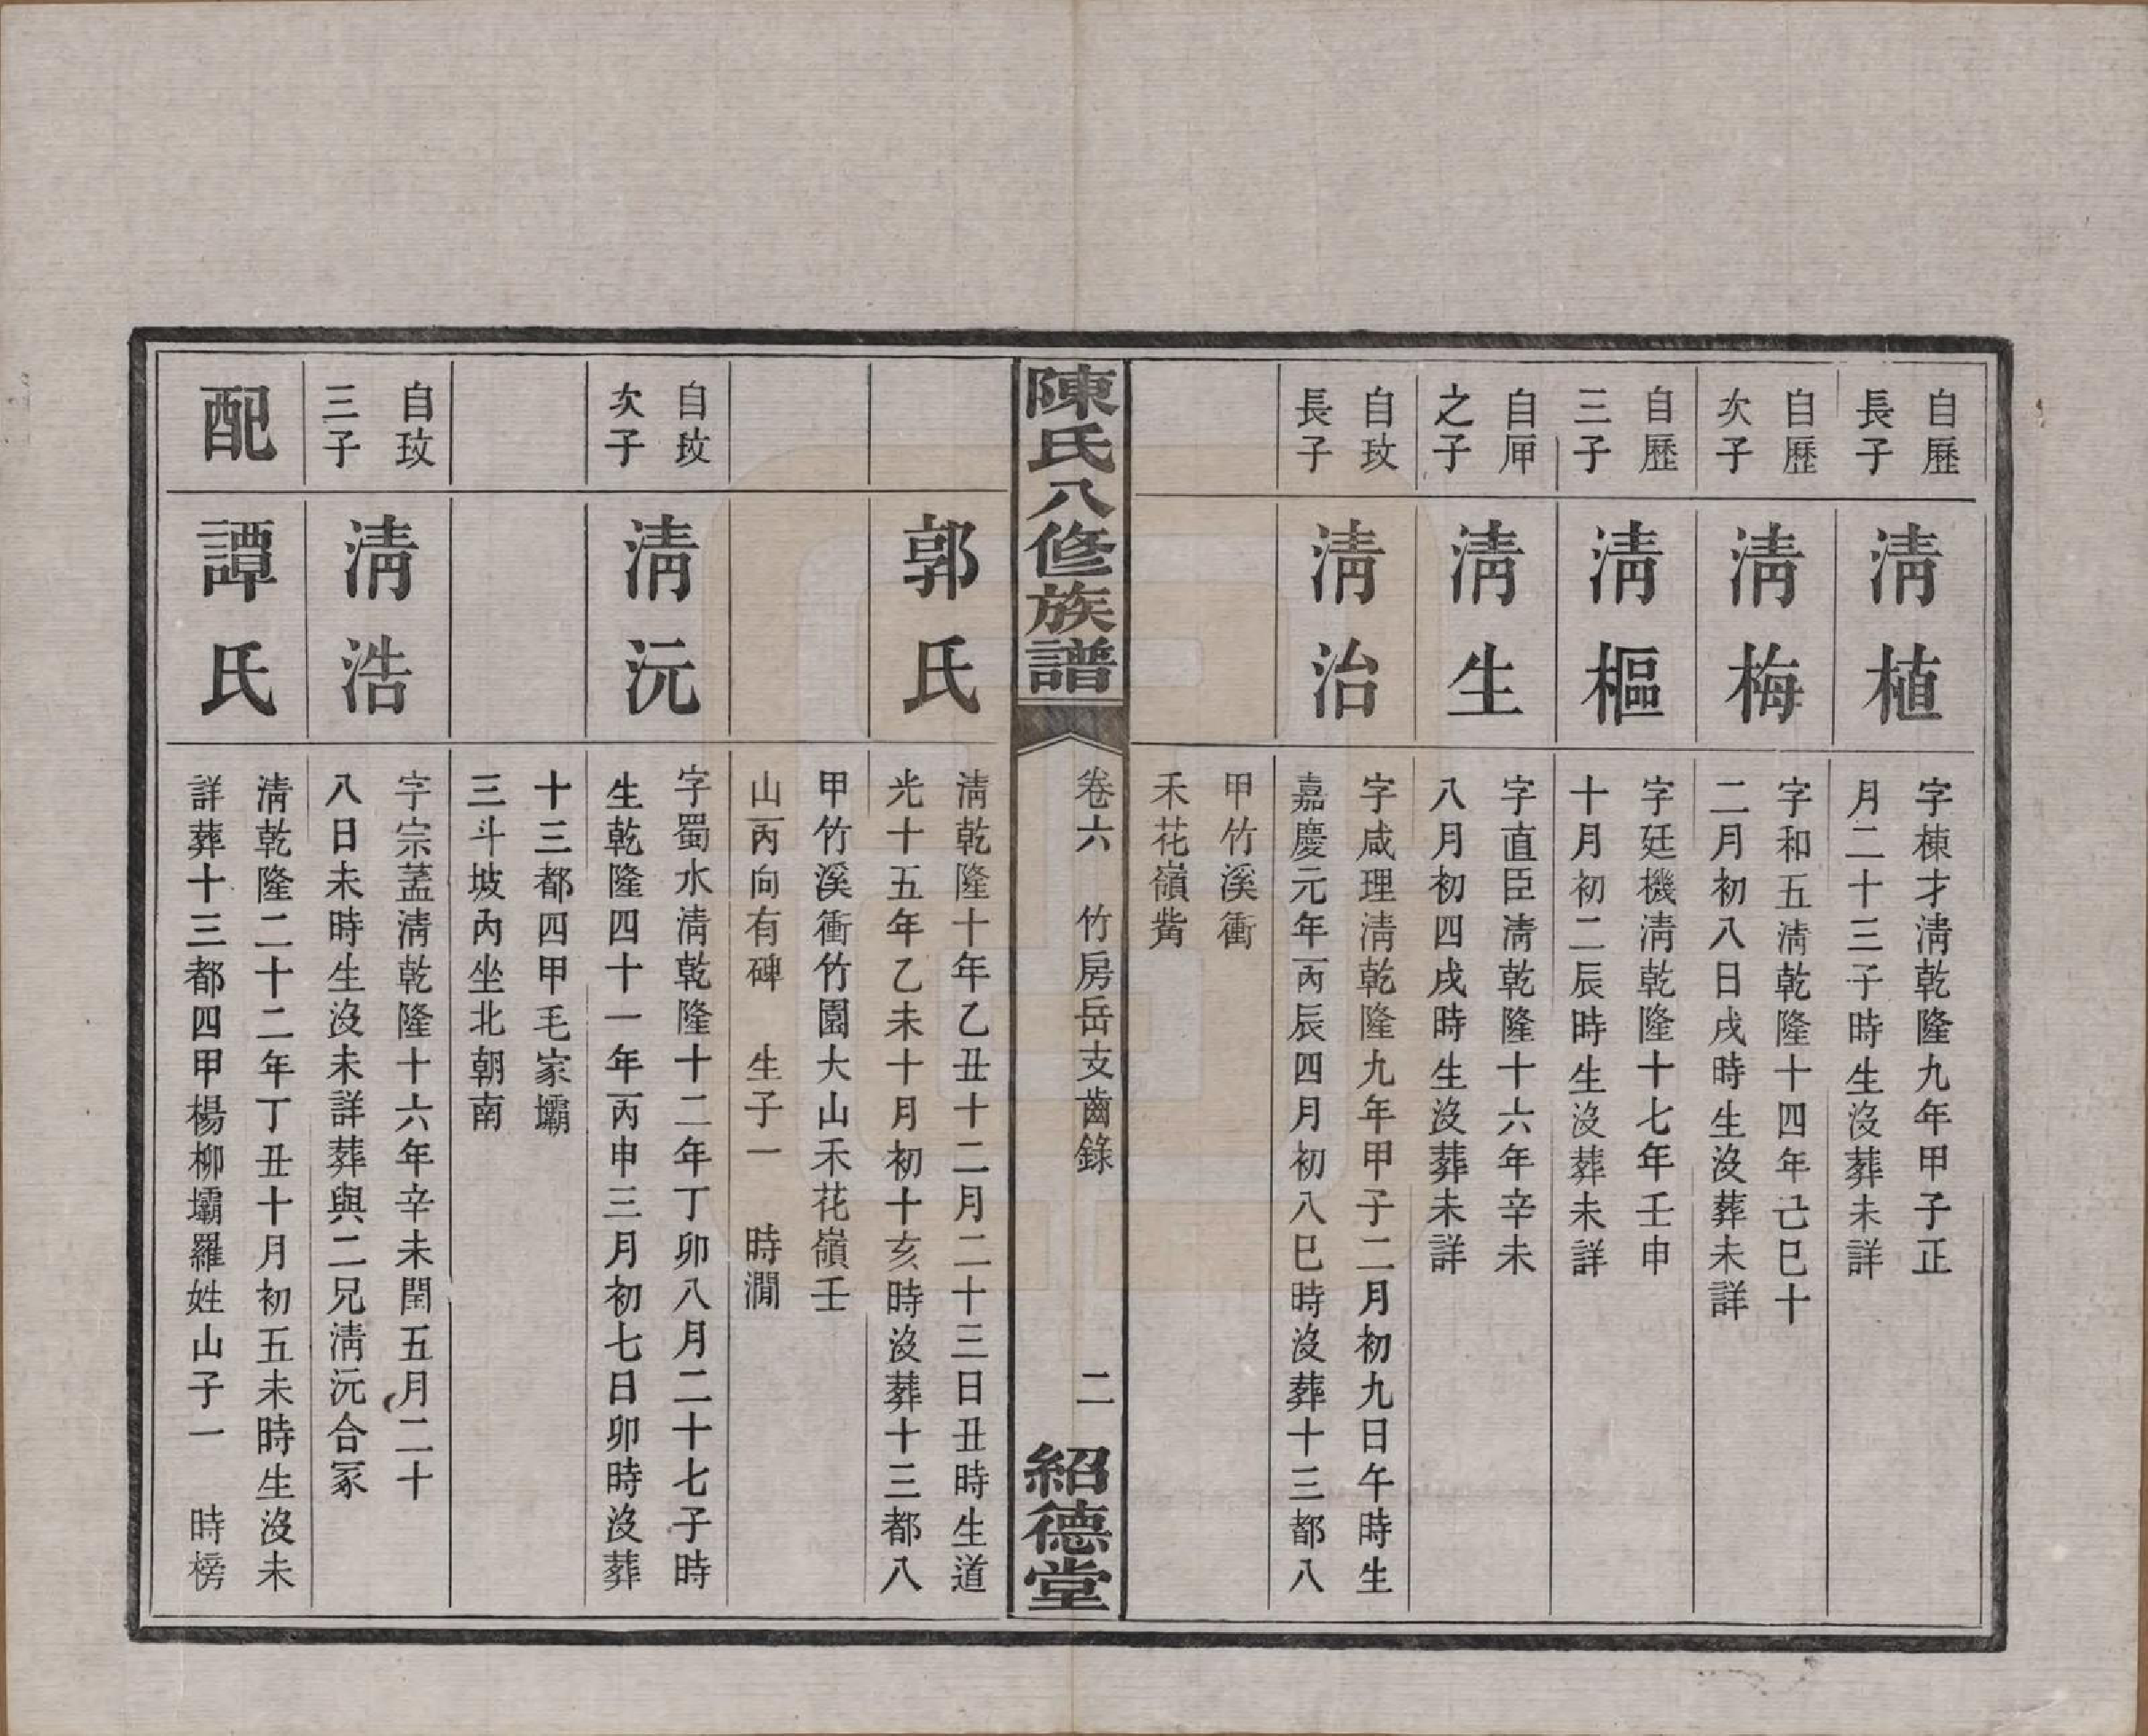 自歷
長子
清植
字棟才清乾隆九年甲子正
月二十三子時生沒葬未詳
自歷
次子
清梅
字和五清乾隆十四年己巳十
二月初八日戌時生沒葬未詳
自歷
三子
清樞
字廷機清乾隆十七年壬申
十月初二辰時生沒葬未詳
自厘
之子
清生
字直臣清乾隆十六年辛未
八月初四戌時生沒葬未詳
自玫
長子
清治
字咸理清乾隆九年甲子二月初九日午時生
嘉慶元年丙辰四月初八巳時沒葬十三都八
甲竹溪衝
禾花嶺觜
陳氏八修族譜
卷六 竹房岳支齒錄
二
紹德堂
郭氏
清乾隆十年乙丑十二月二十三日丑時生道
光十五年乙未十月初十亥時沒葬十三都八
甲竹溪衝竹園大山禾花嶺壬
山丙向有碑 生子一 時澗
自玫
次子
清沅
字蜀水清乾隆十二年丁卯八月二十七子時
生乾隆四十一年丙申三月初七日卯時沒葬
十三都四甲毛家壩
三斗坡內坐北朝南
自玫
三子
清浩
字宗蓋清乾隆十六年辛未閏五月二十
八日未時生沒未詳葬與二兄清沅合冢
配
譚氏
清乾隆二十二年丁丑十月初五未時生沒未
詳葬十三都四甲楊柳壩羅姓山子一 時榜